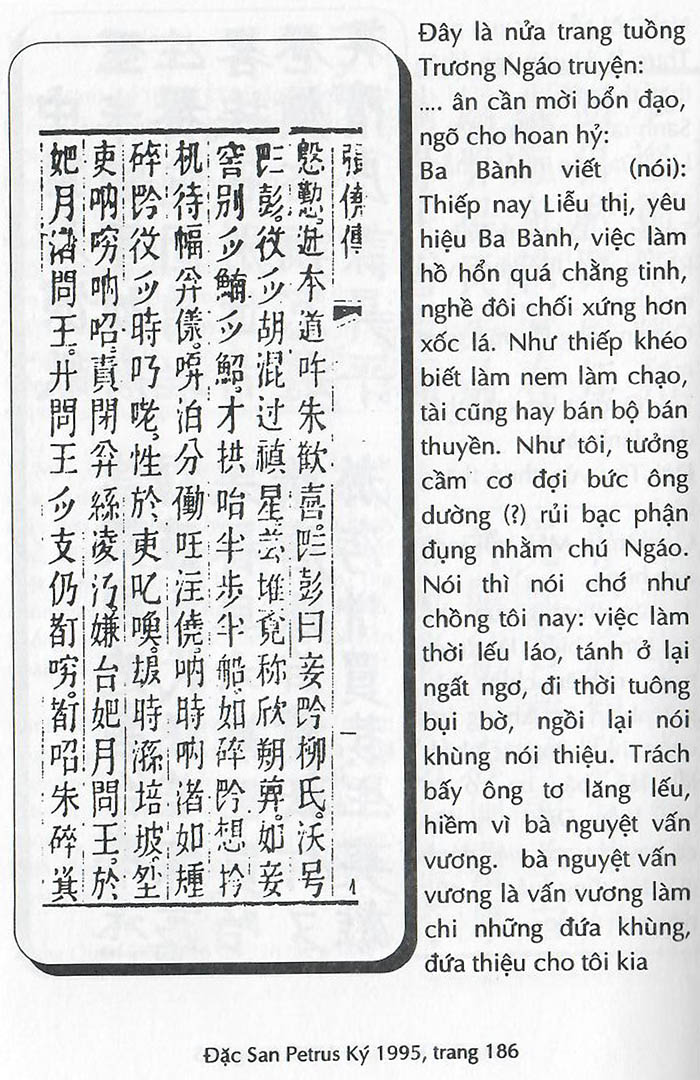 張僥傳
慇懃逬本道吘朱歡喜㐌彭曰妾㝵柳氏沃号
彭役𫜵胡混过禛星芸堆竟称欣朔葬如妾
窖别𫜵鯆𫜵鮉才拱咍半步半船如碎想扲
机待幅翁㨾嗙泊分働㕵汪僥呐時呐渃如𤯩
碎役𫜵時叮咾性於吏𠮙㗕𠫾時㵢培坡㘴
吏呐㗅呐㕿責閉翁絲凌汅嫌台妑月問王於
妑月渃問王廾問王𫜵支仍㗅㕿朱碎箕
Đây là nửa trang tuồng
Trương Ngáo truyện:
.... ân cần mời bổn đạo,
ngõ cho hoan hỷ:
Ba Bành viết (nói):
Thiếp nay Liễu thị, yêu
hiệu Ba Bành, việc làm
hồ hổn quá chằng tinh,
nghề đôi chối xứng hơn
xốc lá. Như thiếp khéo
biết làm nem làm chạo,
tài cũng hay bán bộ bán
thuyền. Như tôi, tưởng
cầm cơ đợi bức ông
dường (?) rủi bạc phận
đụng nhằm chú Ngáo.
Nói thì nói chớ như
chồng tôi nay: việc làm
thời lếu láo, tánh ở lại
ngất ngơ, đi thời tuông
bụi bờ, ngồi lại nói
khùng nói thiệu. Trách
bấy ông tơ lăng lếu,
hiềm vì bà nguyệt vấn
vương. bà nguyệt vấn
vương là vấn vương làm
chi những đứa khùng,
đứa thiệu cho tôi kia
Đặc San Petrus Ký 1995, trang 186